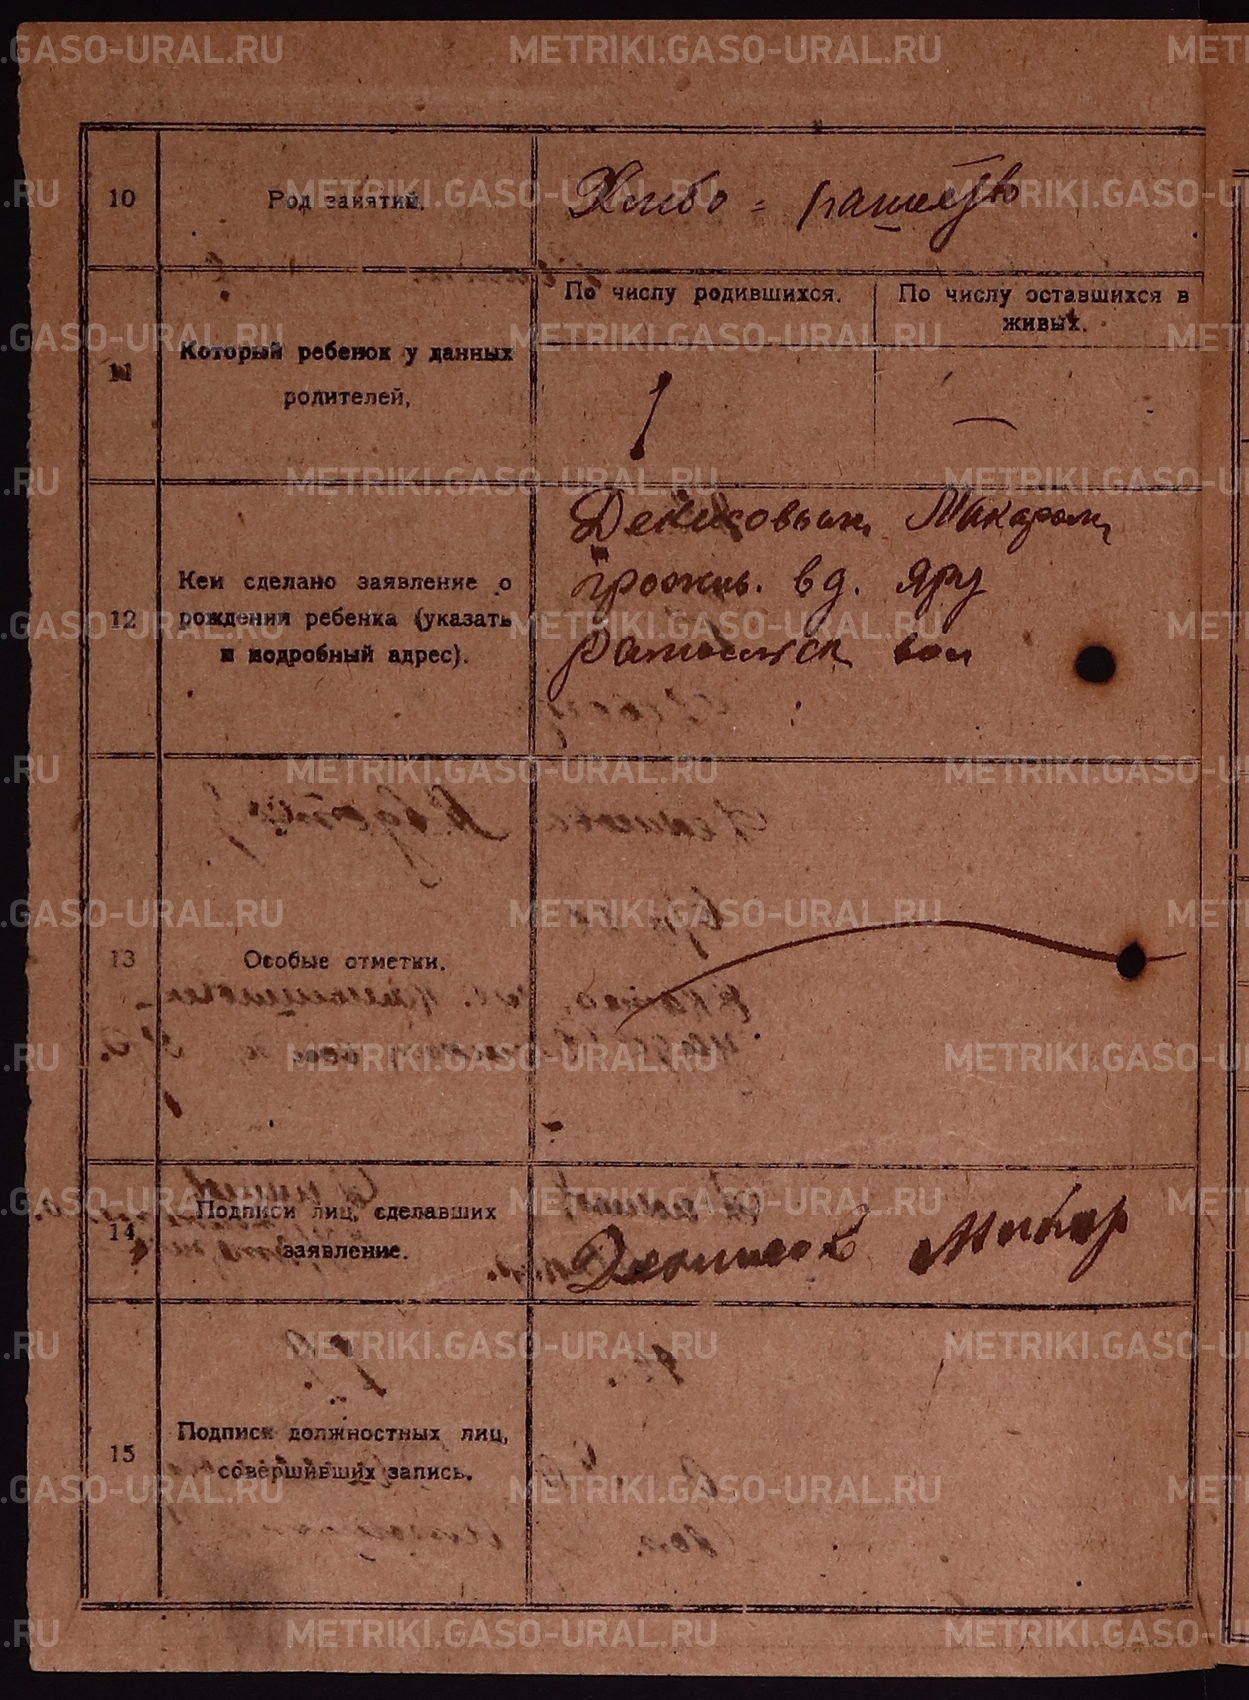 METRIKI.GASO-URAL.RU
10
Род занятий.
Хлебо = пашество
11
Который ребенок у данных
родителей,
По числу родившихся.
По числу оставшихся в
живых.
1
—
12
Кем сделано заявление о
рождении ребенка (указать
и подробный адрес).
Денисовым Макаром
прожив. в д. Яру
вол
13
Особые отметки.
14
Подписи лиц, сделавших
заявление.
Денисов Макар
15
Подписи должностных лиц,
совершивших запись.